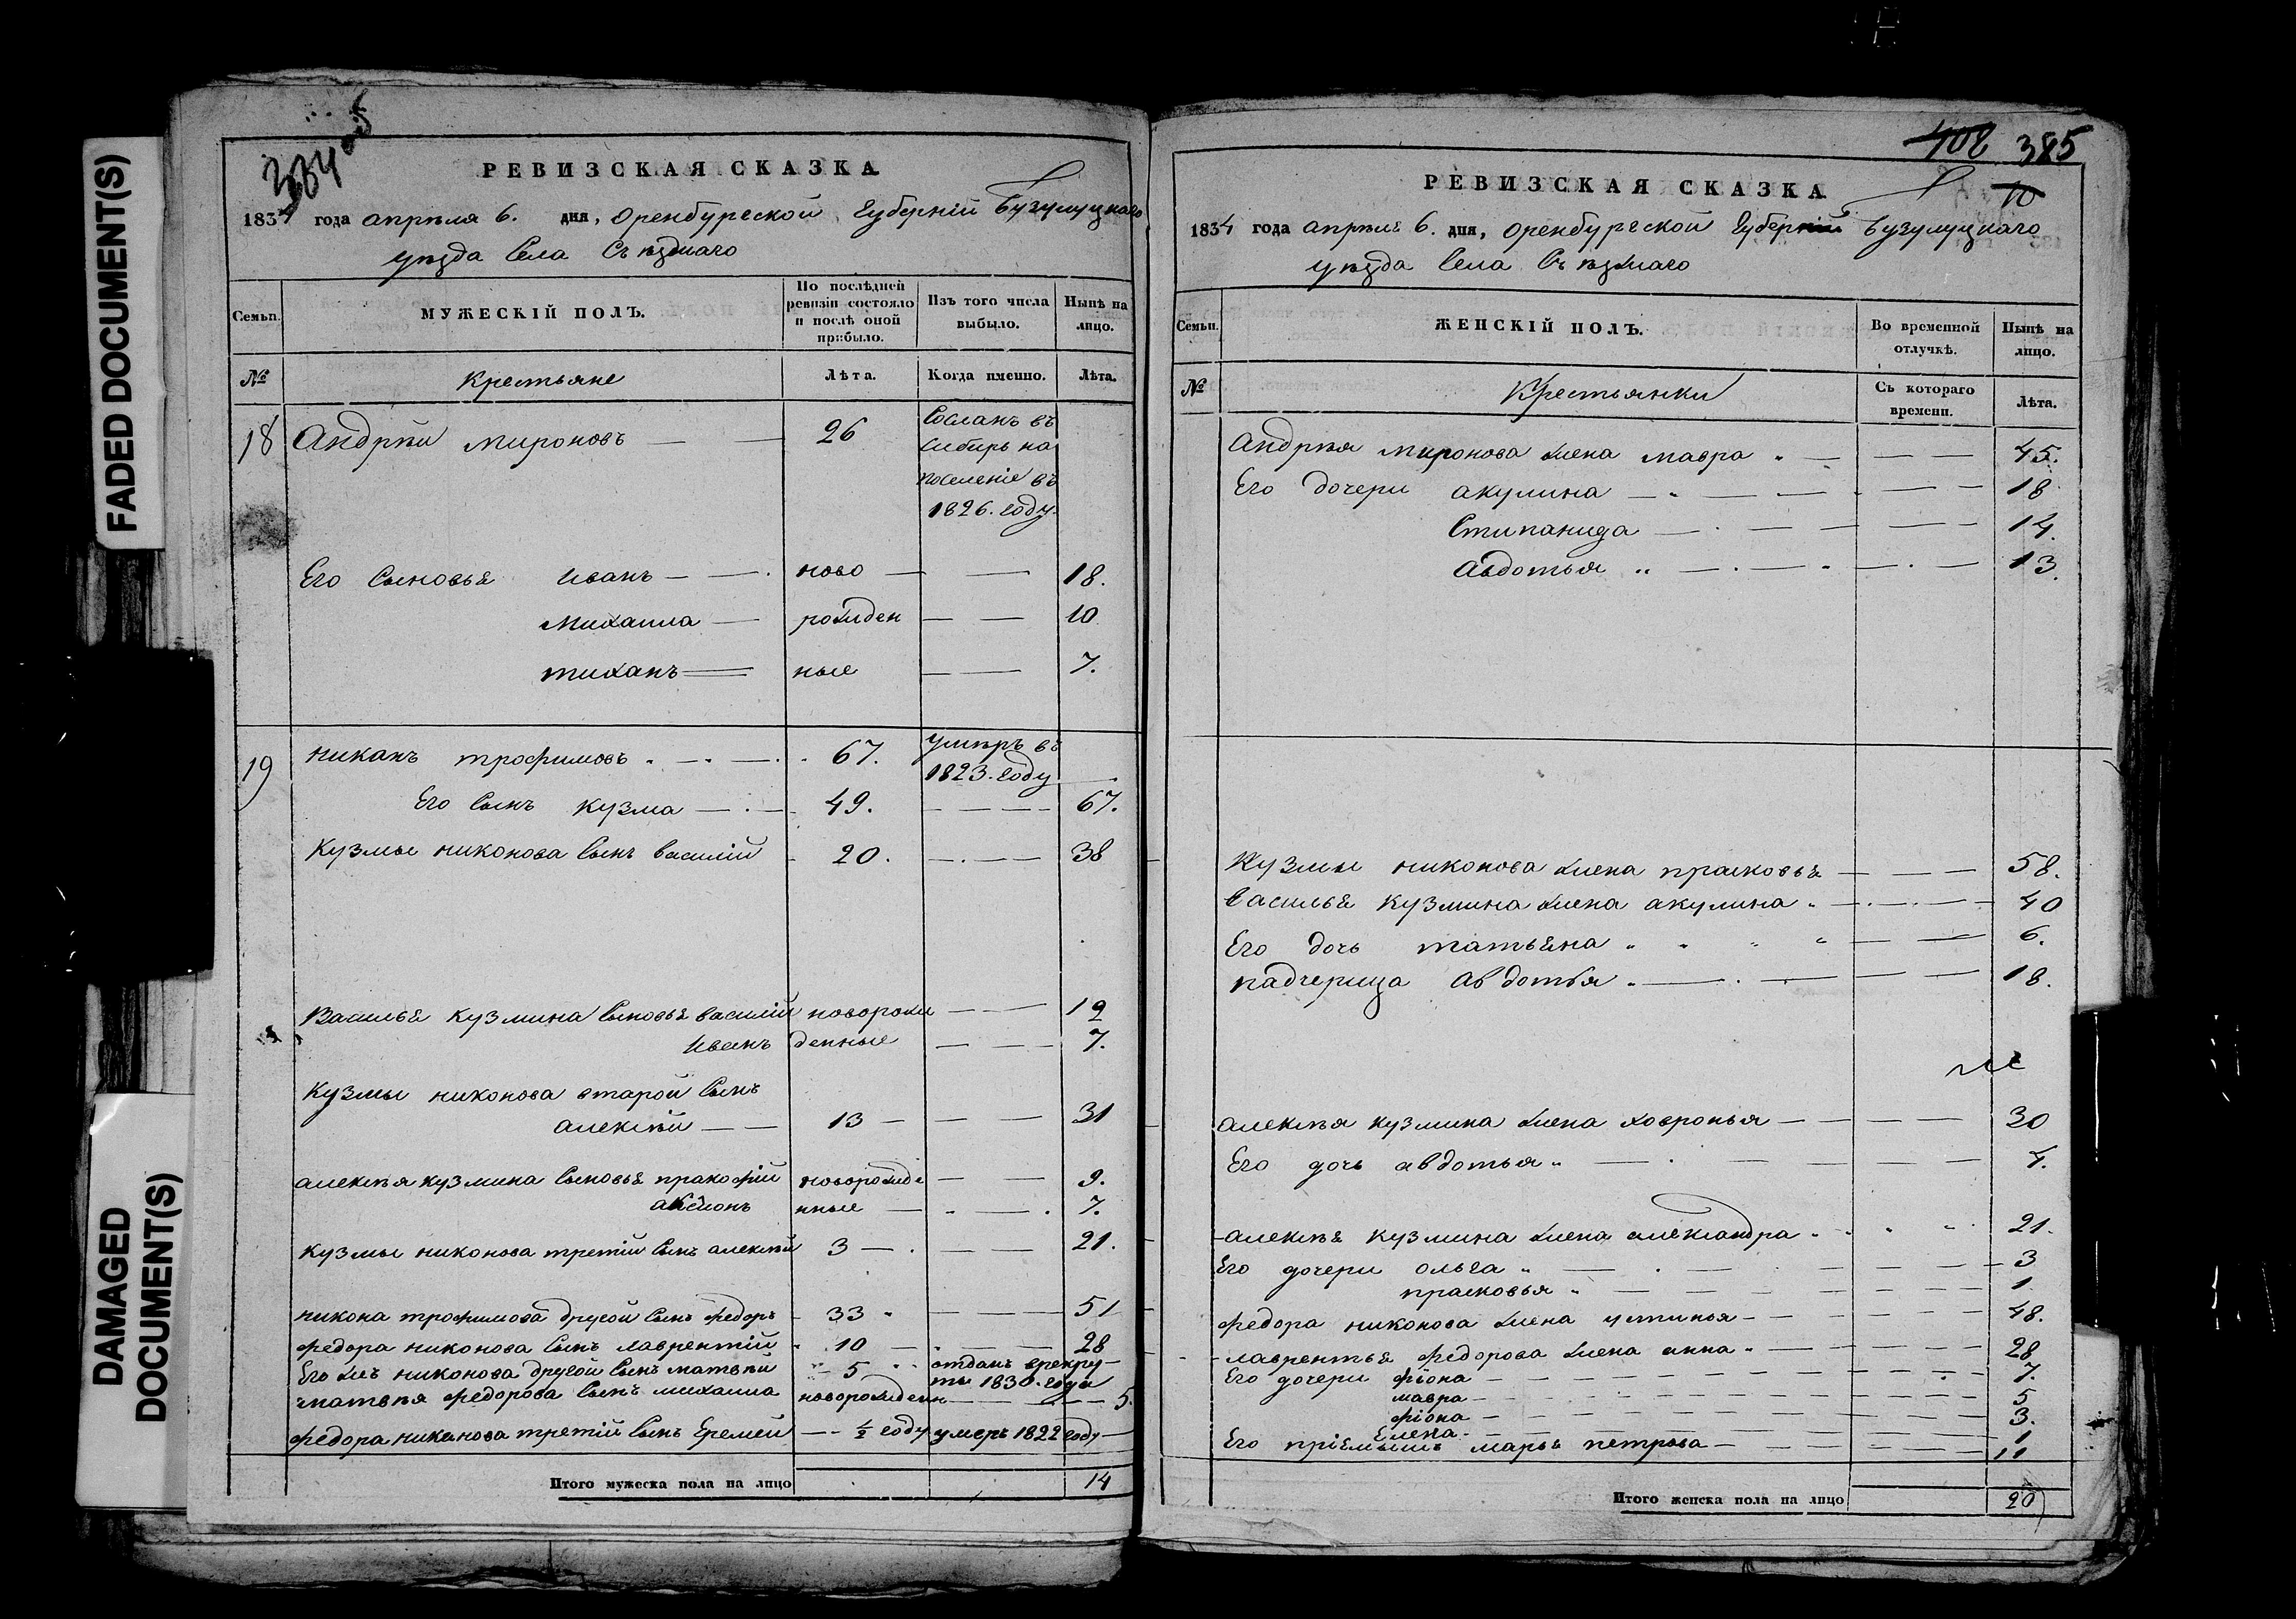 FADED DOCUMENT(S)
DAMAGED
DOCUMENT(S)
РЕВИЗСКАЯ СКАЗКА
1834 года апрѣля 6. дня, Оренбургской Губерніи Бузулуцкаго
уѣзда Села Съѣзжаго
Семьи.
МУЖЕСКІЙ ПОЛЪ.
По послѣдней ревизіи состояло и послѣ оной прибыло.
Изъ того числа выбыло.
Нынѣ на лицо.
№
Крестьяне
Лѣта.
Когда именно.
Лѣта.
18 Андрѣй Мироновъ 26 Сосланъ въ
Сибирь на
поселеніе въ
1826. году.
Его Сыновья Иванъ ново 18.
Михаила рожден 10
тиханъ ные 7.
19 никанъ трофимовъ 67. умѣръ въ
1823. году
Его Сынъ кузма 49. 67.
Кузмы никонова Сынъ василій 20. 38
Василья кузмина Сыновья василій оворож 12
Иванъ денные 7.
Кузмы никонова вторай Сынъ
алексѣй 13 31
алексѣя кузмина Сыновья пракофій новорожде 9.
аксионъ нные 7.
кузмы никонова третій Сынъ алексѣй 3 21.
никона трофимова другой Сынъ федоръ 33 51
федора никонова Сынъ лаврентій 10 28
Его жъ никонова другой Сынъ матвѣй 5 отданъ врекру
ты 1830. года
матвѣя федорова Сынъ михаила новорожденн 5.
федора никонова третій Сынъ Еремей ½ году умеръ 1822 году
Итого мужеска пола на лицо 14
402 385
10
РЕВИЗСКАЯ СКАЗКА
1834 года апрѣля 6. дня, Оренбургской Губерніи Бузулуцкаго
уѣзда Села Съѣзжаго
Семьи.
ЖЕНСКІЙ ПОЛЪ.
Во временной отлучкѣ.
Нынѣ на лицо.
№
Крестьянки
Съ котораго времени.
Лѣта.
Андрѣя Миронова жена мавра 45.
Его дочери акулина 18
Стипанида 14.
Авдотья 13.
Кузмы никонова жена прасковья 58.
Василья кузмина жена акулина 40
Его дочь татьяна 6.
падчерица Авдотья 18.
алексѣя кузмина жена ховронья 30
Его дочь авдотья 4.
алексѣя кузмина жена александра 21.
Его дочери ольга 3
прасковья 1
федора никонова жена устинья 48.
лаврентья федорова жена анна 28
Его дочери фіона 7.
мавра 5
фіона 3.
Елена 1
Его пріемышъ марья петрова 11
Итого женска пола на лицо 20